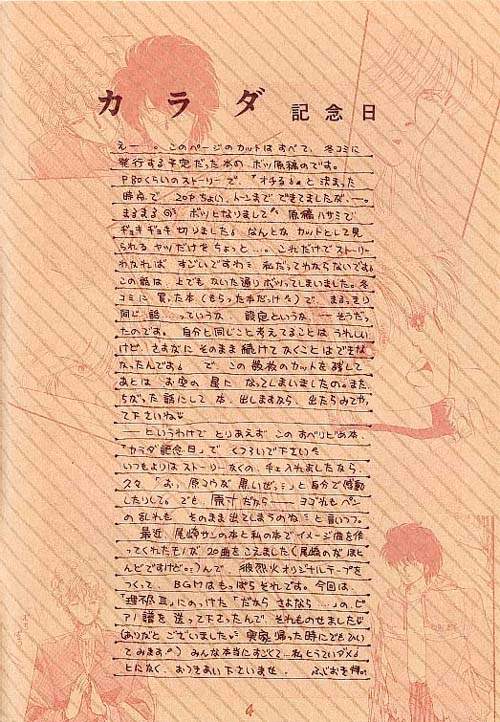 カラダ 記念日
えー 。このページのカットはすべて、冬コミに
発行する予定だった本の ボツ原稿のです。
P80くらいのストーリーで、「オチる」と決まった
時点で 20Pちょい、トーンまで できてましたが、ー。
まるまる ボツとなりまして 原稿ハサミで
ギョキギョキ 切りました。なんとか カットとして見
られるヤツだけをちょっと…。これだけでストーリー
わかれば すごいですわ 私だってわからないです
この話は、上でも かいた通り ボツってしまいました。冬
コミに 買った本(もらった本だっけ)で、まるっきり
同じ 話 …っていうか、設定というか ーそうだっ
たのです。自分と同じこと考えてることは うれしい
けど、さすがに そのまま 続けてかくことは できませ
なったんです。 で、この数枚のカットを残して
あとは お空の 星に なってしまいましたの。また
ちがった 話にして 本、出しますなら、出たらみてやっ
て下さいね
ーというわけで とりあえず この
「カラダ記念日」で くつろいで下さい
いつもよりは ストーリーなくの、チェ入れましたなら、
久々 「おっ、原コウが 黒いぜ」と自分で感動
したりして。でも 原寸だからー ヨゴれもペン
の乱れも そのまま出てしまうのね と言いつつ。
最近、尾崎サンの本と私の本でイメージ曲を作
ってくれたモノが 20曲をこえました(尾崎のが ほと
んどですけど)んで、彼烈火オリジナルテープを
つくって、BGMはもっぱら それです。今回は、
「理不尽Ⅲ」にのっけた「だから さよなら …」の、ピ
アノ譜を 送って下さったんで、それものせました
(ありがと ございました 実家帰った時にでもひい
てみます) みんな本当にすごくて…私
とにかく、おつきあい下さいませ。
4